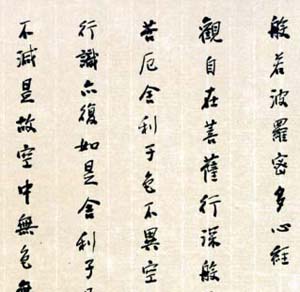 般若波羅密多心經
觀自在菩薩行深般
苦厄舍利子色不異空
行識亦復如是舍利子是
不減是故空中無色無